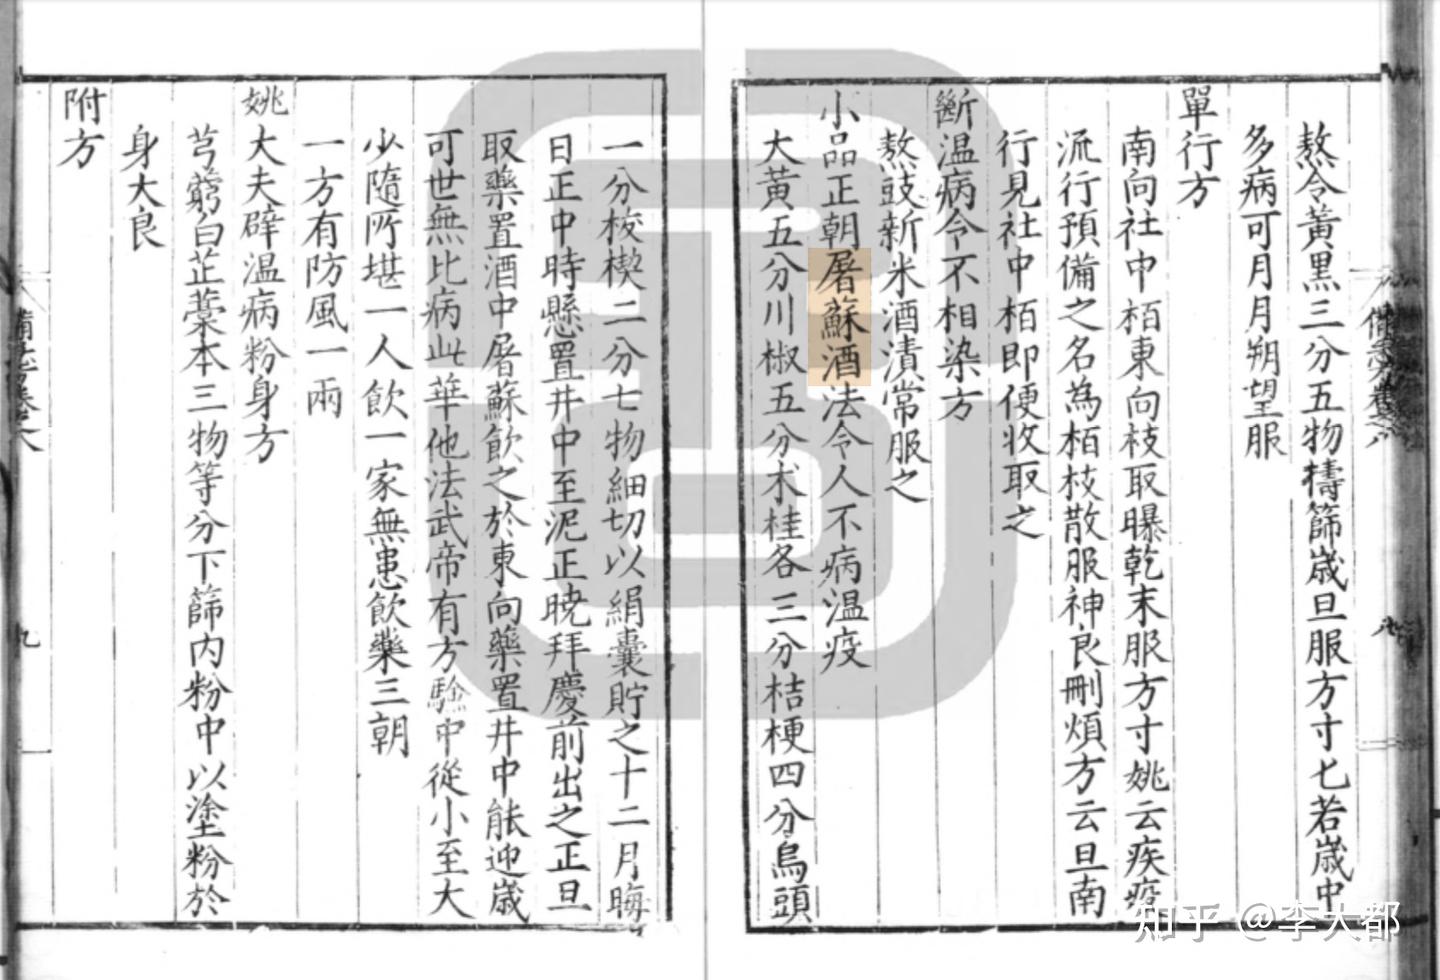 熬令黃黑三分五物擣篩歲旦服方寸匕若歲中
多病可月月朔望服
單行方
南向社中栢東向枝取曝乾末服方寸姚云疾疫
流行預備之名為栢枝散服神良刪煩方云旦南
行見社中栢即便收取之
斷温病令不相染方
熬豉新米酒漬常服之
小品正朝屠蘇酒法令人不病温疫
大黃五分川椒五分术桂各三分桔梗四分烏頭
一分桵楔二分七物細切以絹囊貯之十二月晦
日正中時懸置井中至泥正曉拜慶前出之正旦
取藥置酒中屠蘇飲之於東向藥置井中能迎歲
可世無比病此華他法武帝有方驗中從小至大
少隨所堪一人飲一家無患飲藥三朝
一方有防風一兩
姚大夫辟温病粉身方
芎藭白芷藁本三物等分下篩內粉中以塗粉於
身大良
附方
九
知乎 @李大都